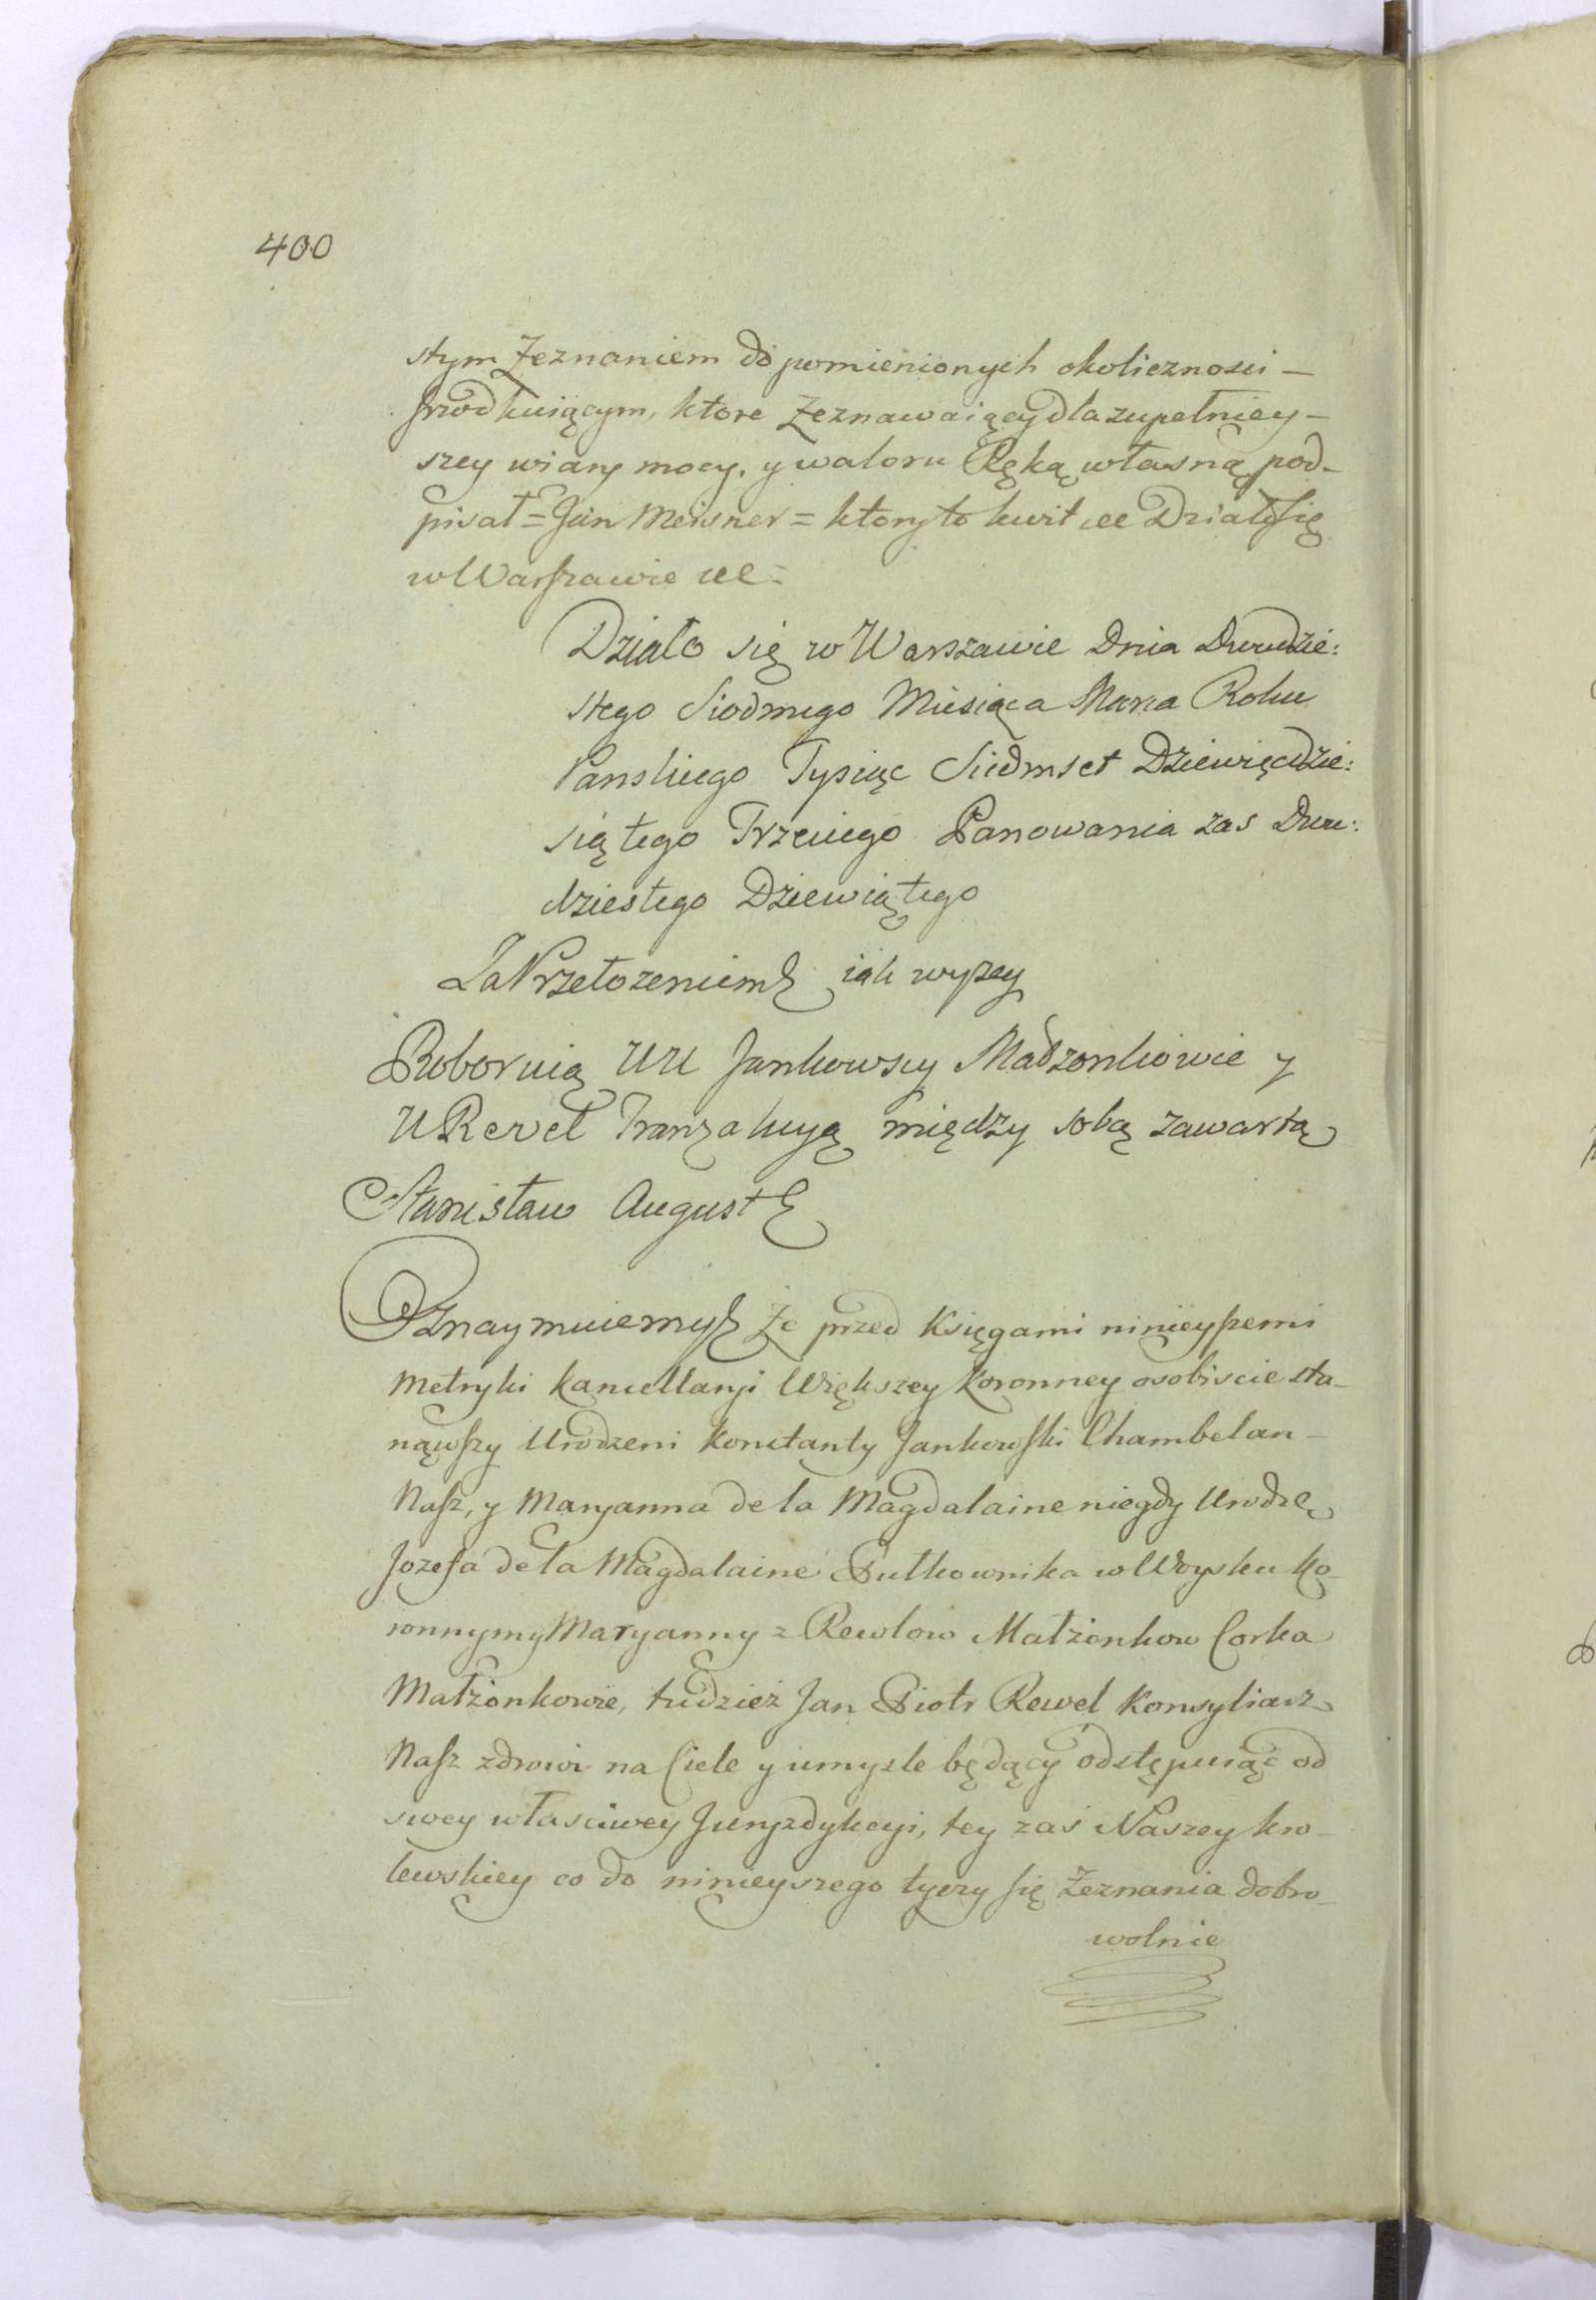 400
stym Zeznaniem do pomienionych okolicznosci –
srzodkuiącym, ktore Zeznawaiący dla zupełniey –
szey wiary mocy, y waloru Ręką własną pod-
pisał = Jan Meisner = ktory to kwit Działo się
w Warszawie
Działo się w Warszawie Dnia Dwudzie:
stego Siodmego Miesiąca Marca Roku
Panskiego Tysiąc Siedmset Dziewięcdzie:
siątego Trzeciego Panowania zas Dwu:
dziestego Dziewiątego
Za Przełozeniem iak wyzey
Roboruią UU Jankowscy Małzonkowie y
U Revel Tranzakcyą między sobą zawartą
Stanisław August
Oznaymuiemy Ze przed Księgami ninieyszemi
Metryki Kancellaryi Większey Koronney osobiscie sta-
nąwszy Urodzeni Konstanty Jankowski Chambelan –
Nasz, y Maryanna de la Magdalaine niegdy Urodze
Jozefa de la Magdalaine Pułkownika w Woysku Ko-
ronnym y Maryanny z Rewlow Małżonkow Corka
Małżonkowie, tudzież Jan Piotr Rewel Konsyliarz
Nasz zdrowi na Ciele y umysle będący odstępuiąc od
swey własciwey Juryzdykcyi, tey zaś Naszey kro-
lewskiey co do ninieyszego tyczy się Zeznania dobro-
wolnie